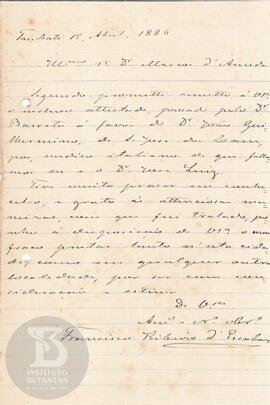 Taubaté 12, Abril, 1886
Illmo Sr Dr Marcos d'Arruda
Segundo prometti remetto á VSa
o incluso attestado, passado pelo Dr
Barreto á favor do Dr João Gui
lhermino, de S. José dos Cam
pos, medico italiano de que falla
mos eu e o Dr José Luiz.
Tive muito prazer em conhe
cel-o, e grato ás attenciosas ma
neiras, com que fui tratado, po
nho á disposição de VSa o meu
fraco prestar tanto n'esta cida
de, como em qualquer outra
localidade, por ser com con
sideração e estima
De VSa
Amo e
Francisco Ribeiro d'Escobar
INSTITUTO
BUTANTAN